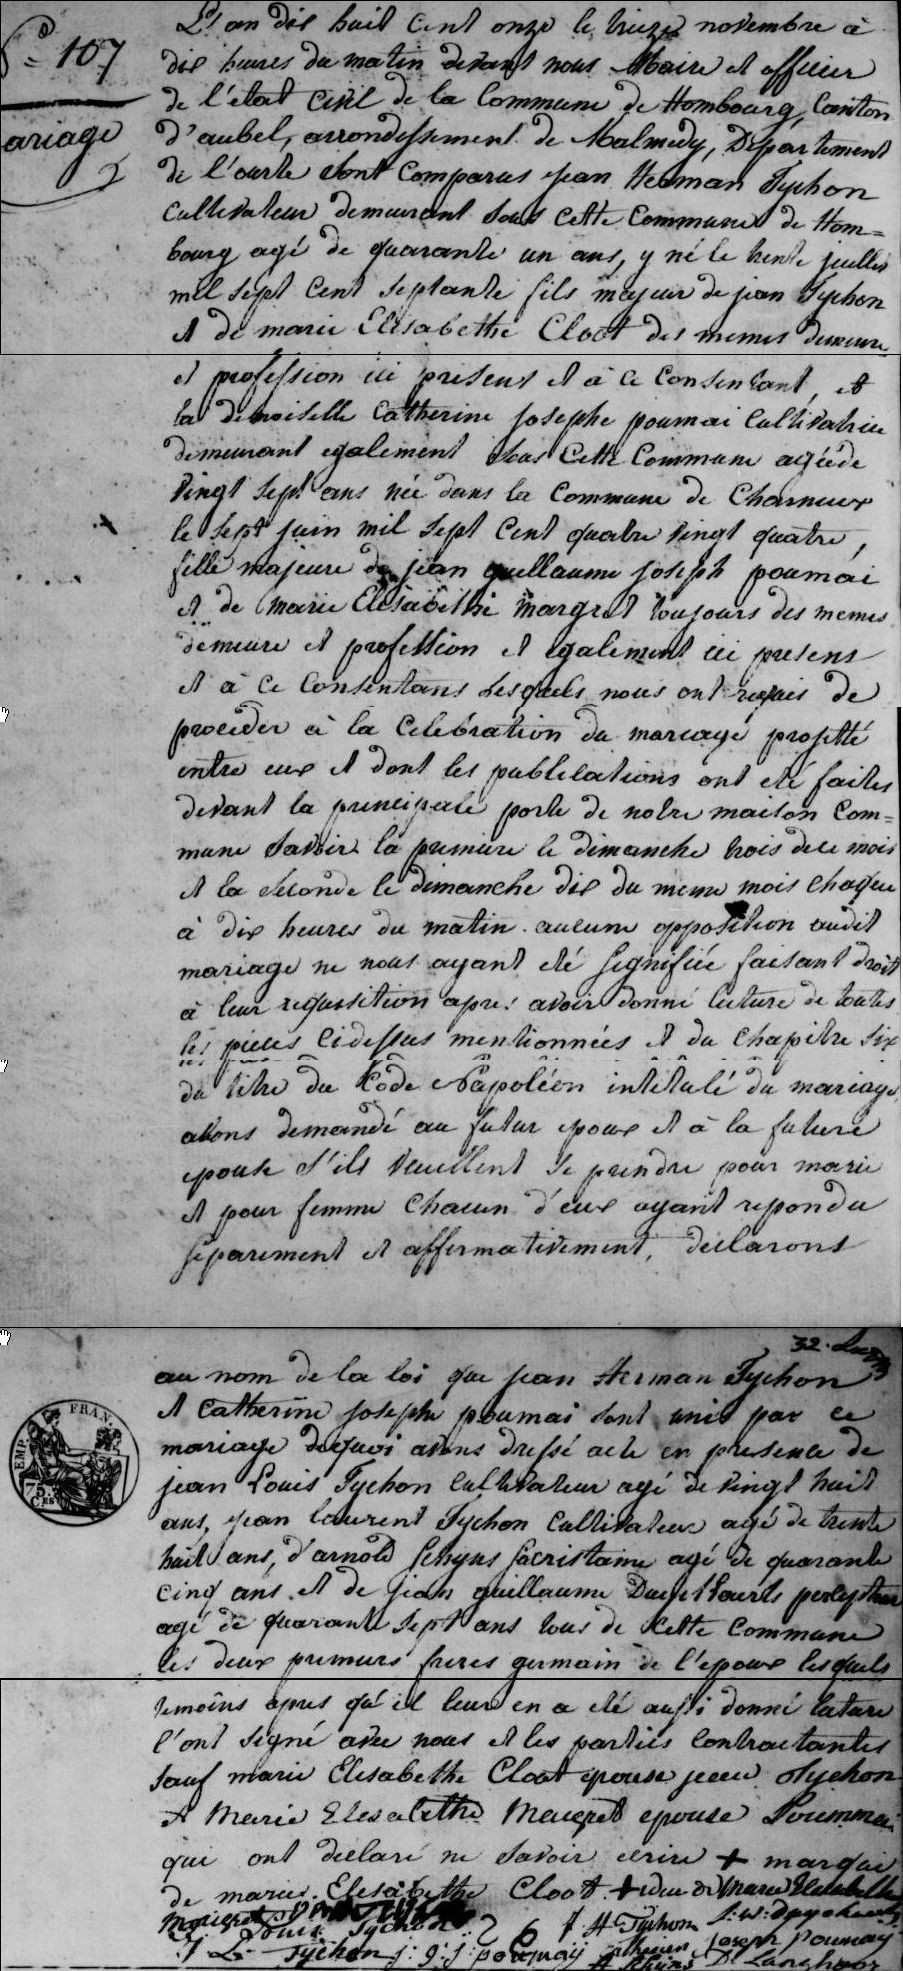 N° 107
ariage
L'an dix huit cent onze le treize novembre à
dix heures du matin devant nous Maire et officier
de l'etat civil de la Commune de Hombourg, Canton
d'aubel, arrondissement de Malmedy, Departement
de l'ourte sont comparus jean Herman Tychon
cultivateur demeurant sous cette Commune de Hom=
bourg agé de quarante un ans, y né le trente juillet
mil sept cent septante fils majeur de jean Tychon
et de marie Elisabethe Cloot des memes demeure
et profession ici present et à ce Consentant, et
la demoiselle Catherine josephe poumai Cultivatrice
demeurant egalement sous Cette Commune agée de
vingt sept ans née dans la Commune de Charneux
le sept juin mil sept cent quatre vingt quatre,
fille majeure de jean guillaume joseph poumai
et de Marie Elisabethe Margret toujours des memes
demeure et profession et egalement ici presens
et à ce Consentans lesquels nous ont requis de
proceder à la Celebration du mariage projetté
entre eux et dont les publications ont eté faites
devant la principale porte de notre maison Com=
mune savoir la premiere le dimanche trois de ce mois
et la seconde le dimanche dix du meme mois chaque
à dix heures du matin. aucune opposition audit
mariage ne nous ayant eté signifiée faisant droit
à leur requisition apres avoir donné lecture de toutes
les pieces cidessus mentionnées et du chapitre six
du titre du Code Napoléon intitulé du mariage
avons demandé au futur epoux et à la future
epouse s'ils veuillent se prendre pour marie
et pour femme chacun d'eux ayant repondu
separement et affirmativement, declarons
32.
au nom de la loi que jean Herman Tychon
et Catherine josephe poumai sont unis par ce
mariage dequoi avons dressé acte en presence de
jean Louis Tychon Cultivateur agé de vingt huit
ans, jean laurent Tychon Cultivateur agé de trente
huit ans, d'arnold Schyns sacristaine agé de quarante
cinq ans et de jean guillaume percepteur
agé de quarante sept ans tous de cette Commune
les deux premiers freres germain de l'epoux lesquels
temoins apres qu'il leur en a eté aussi donné lecture
l'ont signé avec nous et les parties contractantes
sauf marie Elisabethe Cloot epouse jean Tychon
et Marie Elesabethe Maugret epouse Poummai
qui ont declaré ne savoir ecrire + marque
de marie Elesabethe Cloot + idem de Marie Elisabethe
Maugret J. H Tychon
Louis Tychon
J L Tychon j: g: j: poumay joseph Poumay
A Schyns D. Langhoor
EMP. FRAN.
75.
CES